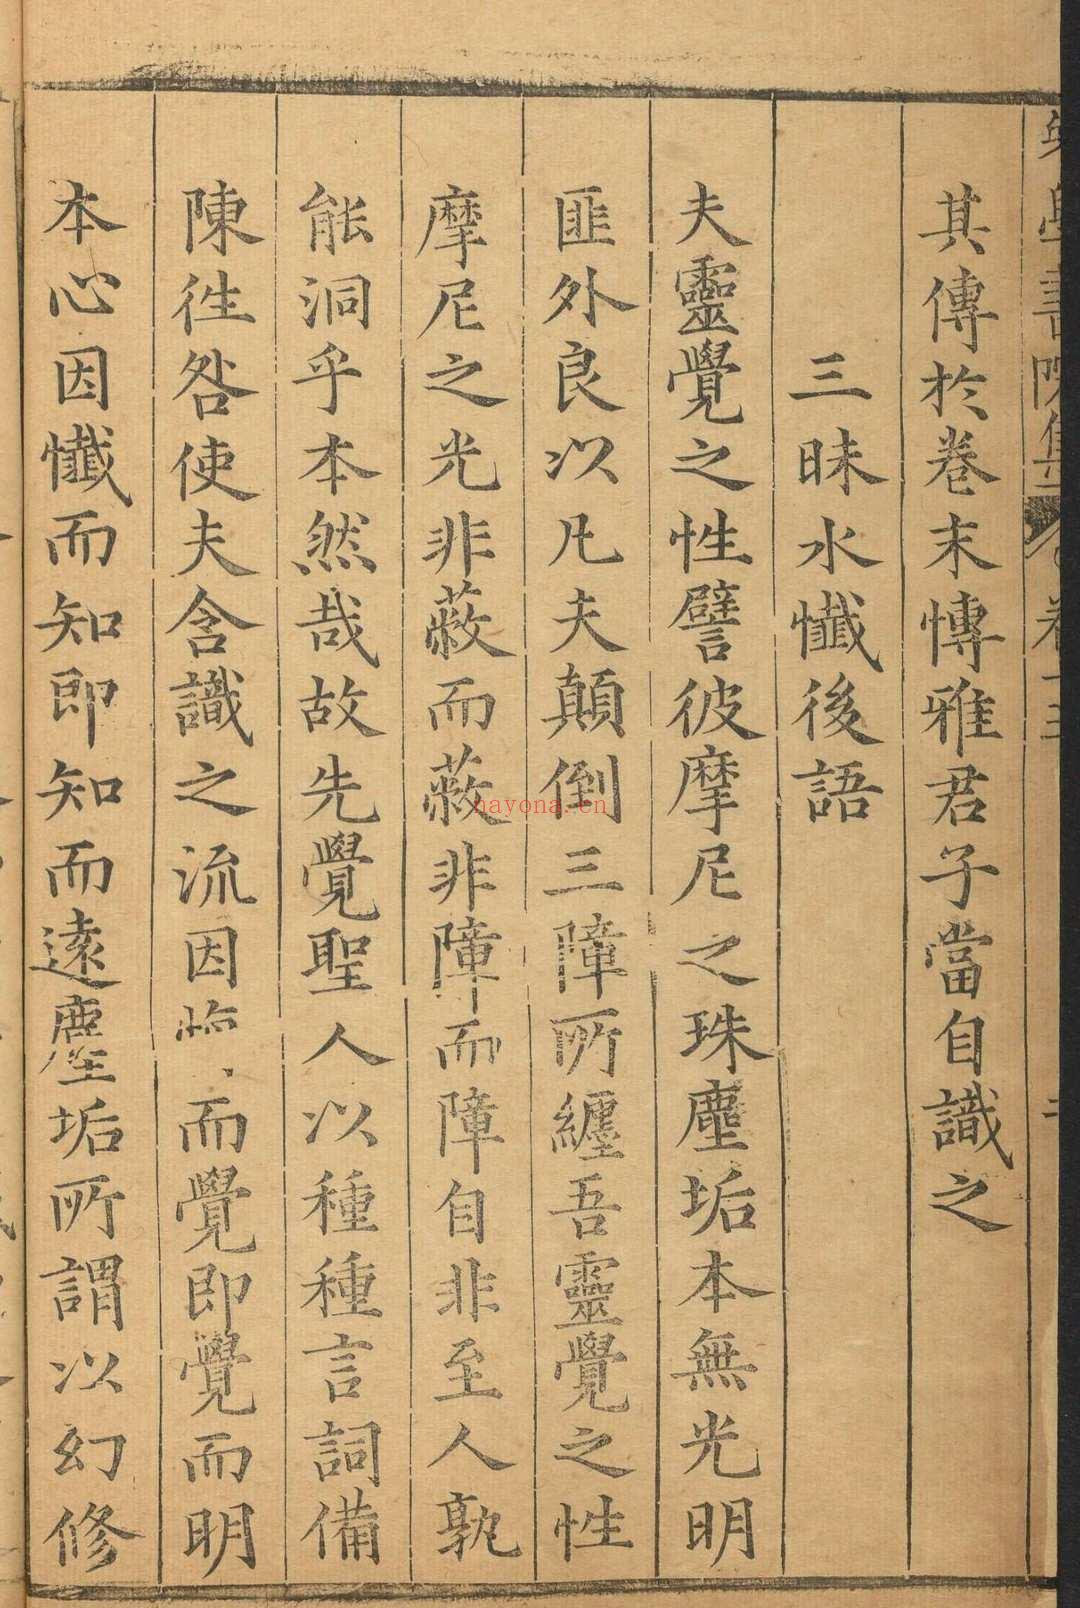 其傳於卷末愽雅君子當自識之
三昧水懺後語
夫靈覺之性譬彼摩尼之珠塵垢本無光明
匪外良以凡夫顛倒三障所纏吾靈覺之性
摩尼之光非蔽而蔽非障而障自非至人孰
能洞乎本然哉故先覺聖人以種種言詞備
陳徃咎使夫含識之流因而覺即覺而明
本心因懺而知即知而遠塵垢所謂以幻修
nayona.cn